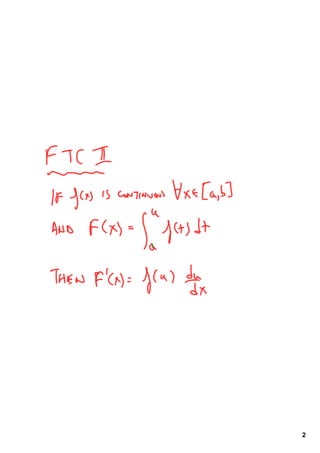 FTC II
IF f(x) IS CONTINUOUS ∀x∈[a,b]
AND F(x) = ∫ₐᵘ f(t) dt
THEN F'(x) = f(u) du/dx
2